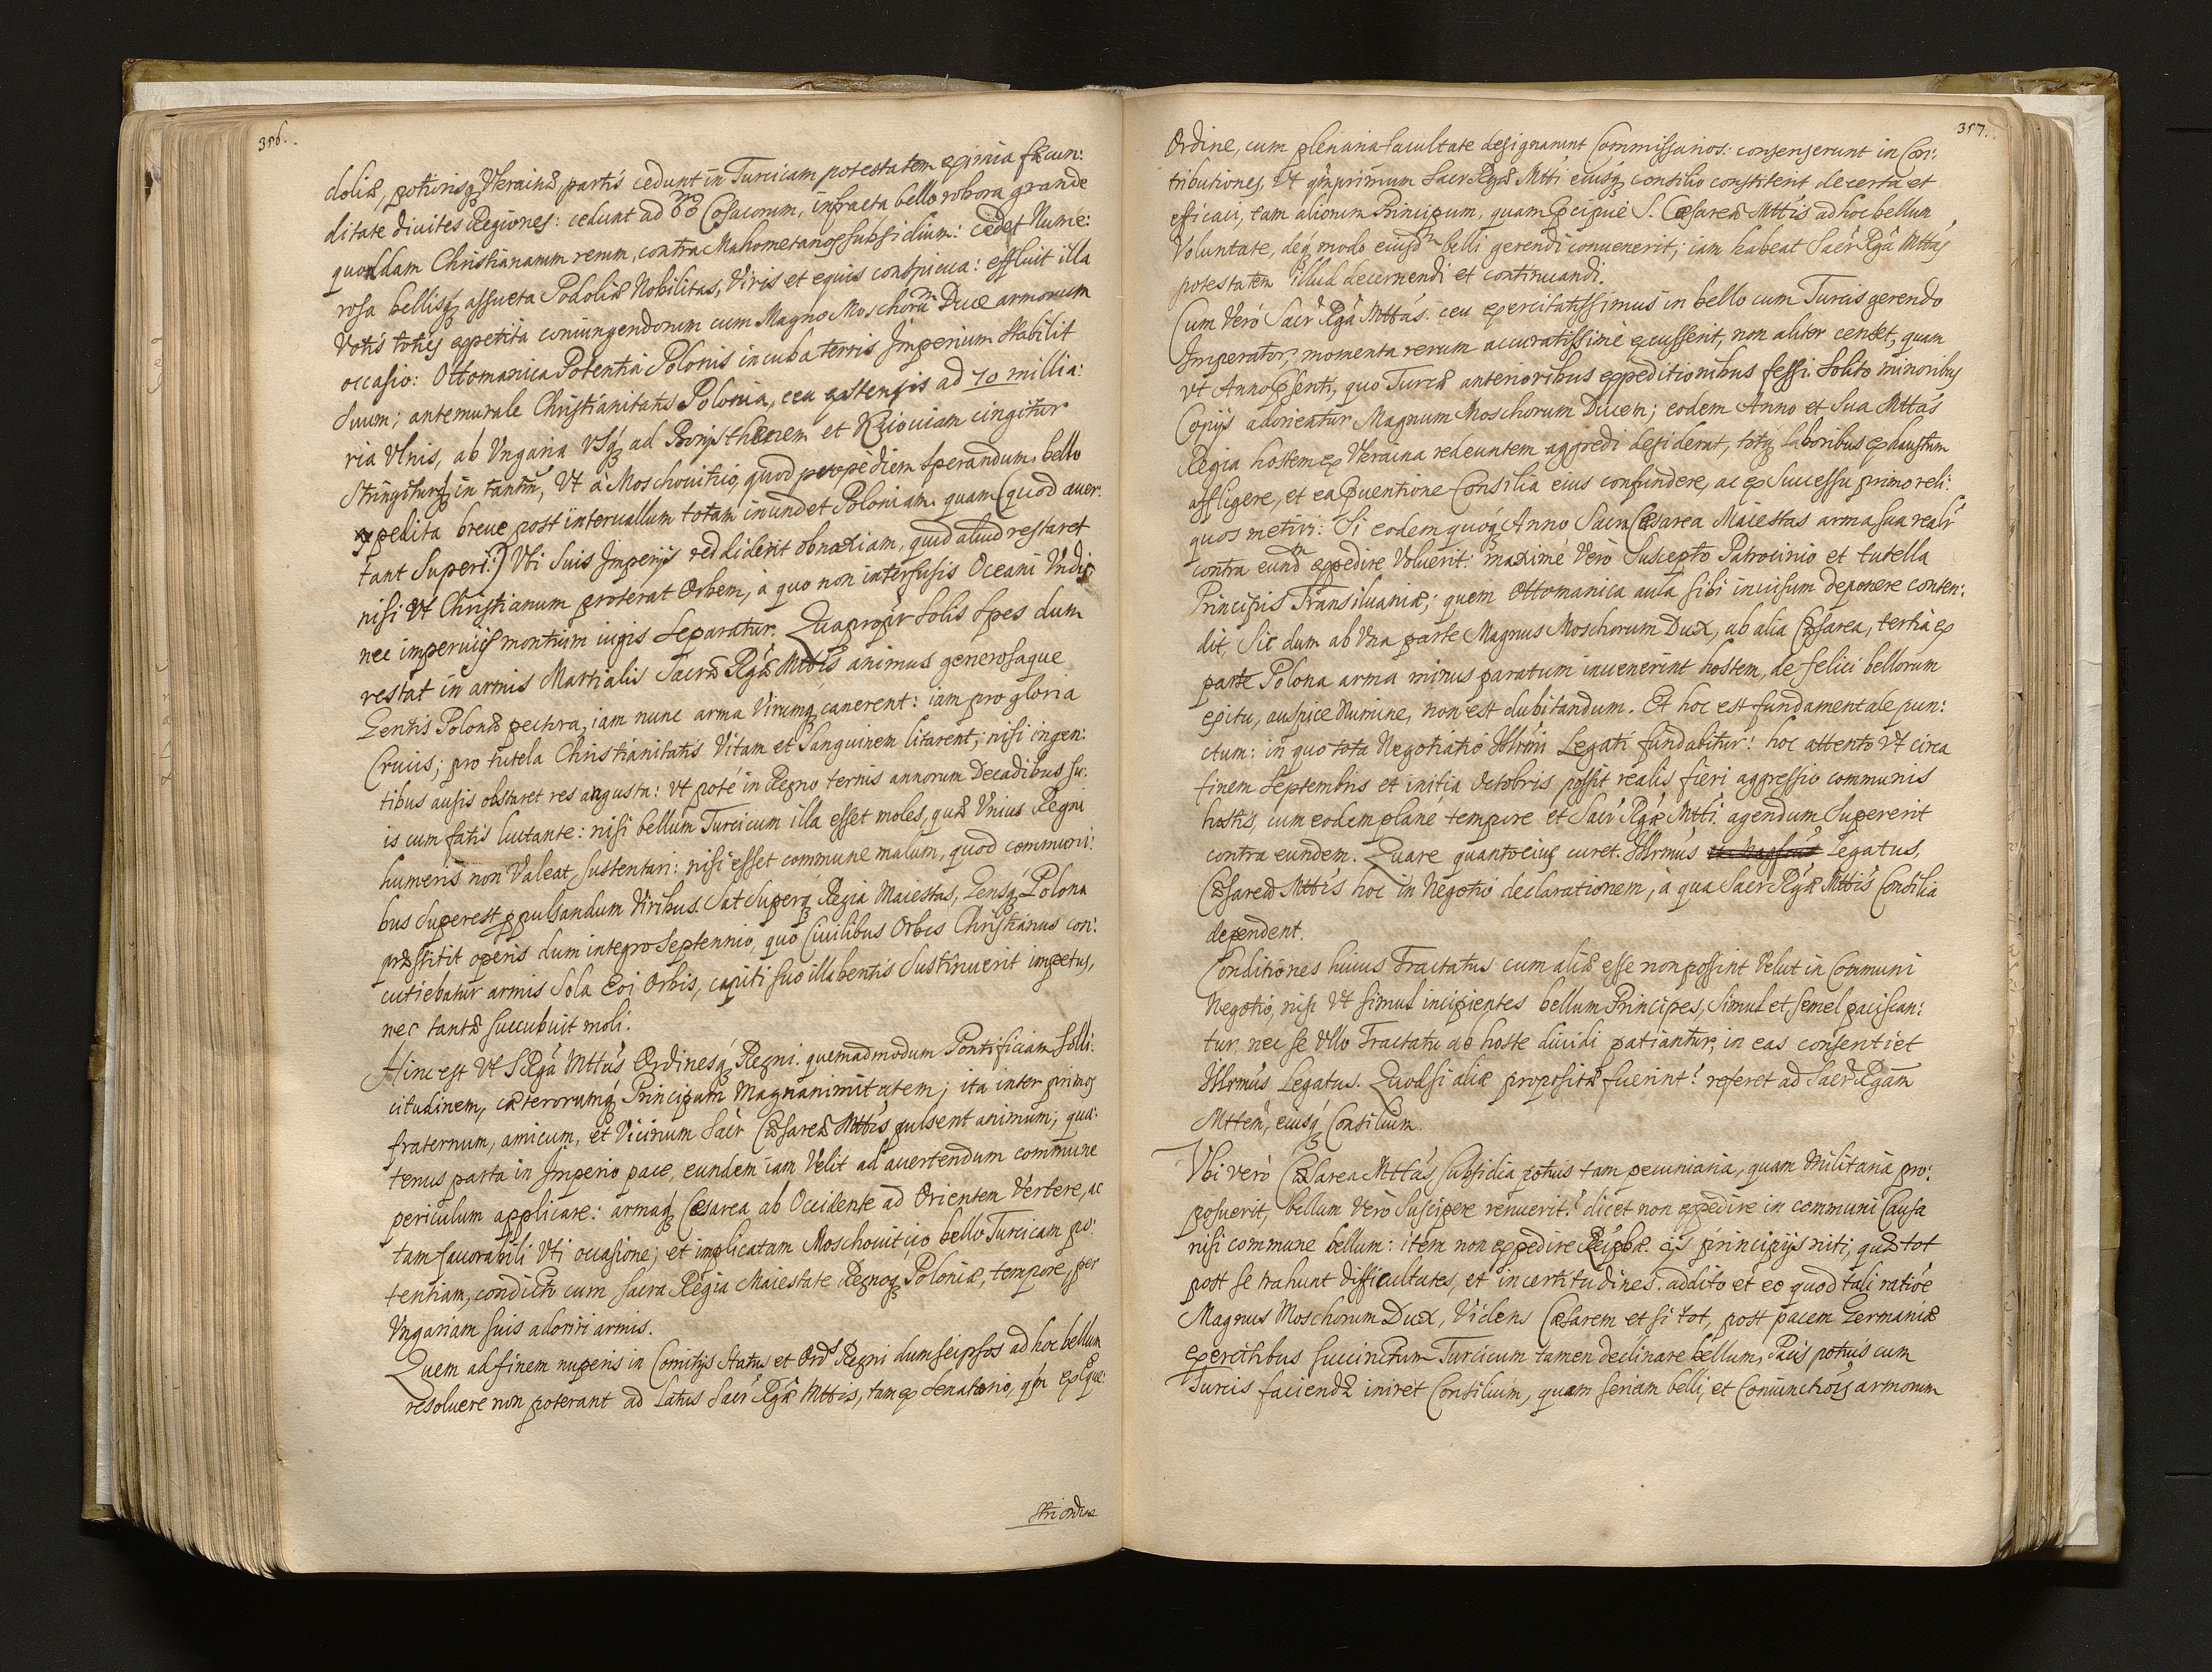 356.
doliæ, potiorisq́ Ukrainæ, partis cedunt in Turcicam potestatem eximia fæcun:
ditate divites Regiones: cedunt ad 60 m Cosacorum, infracta bello robora grande
quoddam Christianarum rerum, contra Mahometanos subsidium: cedet Nume:
rosa bellisq́ assueta Podoliæ Nobilitas, Viris et equis conspicua: effluit illa
Votis toties expetita coniungendorum cum Magno Moschorum Duce armorum
occasio: Ottomanica Potentia Polonis incubat terris Imperium stabilit
Suum; antemurale Christianitatis Polonia, ceu extensis ad 70 millia:
ria Ulnis, ab Ungaria Usq́ ad Borysthenem et Kijoviam cingitur
Stringiturq́ in tantum, Ut à Moschovitico, quod propediem sperandum, bello
expedita breve post intervallum totam inundet Poloniam. quam (quod aver:
tant Superi!) Ubi Suis Imperijs reddiderit obnoxiam, quid aliud restaret
nisi Ut Christianum proterat Orbem, à quo non interfusis Oceani Undis
nec imperuijs montium iugis Separatur. Quapropter solis Spes dum
restat in armis Martialis Sacræ Rgæ Mttis animus generosaque
Gentis Polonæ pectora, iam nunc arma Virumq́ canerent: iam pro gloria
Crucis; pro tutela Christianitatis Vitam et Sanguinem litarent; nisi ingen:
tibus ausis obstaret res angusta: Ut poté in Regno ternis annorum Decadibus su:
is cum fatis luctante: nisi bellum Turcicum illa esset moles, quæ Unius Regni
humeris non Valeat, sustentari: nisi esset commune malum, quod communi:
bus Superest ppulsandum Viribus. Sat Superq́ Regia Maiestas, Gensq́ Polona
præstitit operis dum integro Septennio, quo Civilibus Orbis Christianus con:
cutiebatur armis Sola Eoi Orbis, capiti suo illabentis Sustinuerit impetus,
nec tantæ succubuit moli.
Hinc est Ut S Rga Mttus Ordinesq́ Regni. quemadmodum Pontificiam Solli:
citudinem, cæterorumq́ Principum Magnanimitatem; ita inter primos
fraternum, amicum, et Vicinum Sacr Cæsareæ Mttis pulsent animum; qua:
tenus parta in Imperio pace, eundem iam Velit ad avertendum commune
periculum applicare: armaq́ Cæsarea ab Occidente ad Orientem Vertere, ac
tam favorabili Uti occasione; et implicatam Moschovitico bello Turcicam po:
tentiam, condicto cum Sacra Regia Maiestate Regnoq́ Poloniæ, tempore, per
Ungariam suis adoriri armis.
Quem ad finem nuperis in Comitijs Status et Ords Regni dum seipsos ad hoc bellum
resolvere non poterant ad Latus Sacr Rgæ Mttis, tam ex Senatorio, qm ex Eque:
stri Ordine
357.
Ordine, cum plenaria facultate designarunt Commissarios: consenserunt in Con:
tributiones, Ut qmprimum Sacr Rgæ Mtti eiusq́ consilio constiterit de certa et
efficaci, tam aliorum Principum, quam pcipuè S. Cæsareæ Mttis ad hoc bellum
Voluntate, deq́ modo eiusdm belli gerendi convenerit; iam habeat Sacr Rga Mttas
potestatem illud decernendi et continuandi.
Cum Verò Sacr Rga Mttas. ceu exercitatissimus in bello cum Turcis gerendo
Imperator, momenta rerum accuratissimè excusserit, non aliter censet, quam
Ut Anno psenti, quo Turcæ anterioribus expeditionibus fessi. Solito minoribus
Copijs adorientur Magnum Moschorum Ducem; eodem Anno et Sua Mttas
Regia hostem ex Ukraina redeuntem aggredi desiderat, totq́ laboribus exhaustum
affligere, et ea pventione Consilia eius confundere, ac ex Successu primo reli:
quos metiri: Si eodem quoq́ Anno Sacra Cæsarea Maiestas arma sua realr
contra eundm expedire Voluerit: maximè Verò Suscepto Patrocinio et tutella
Principis Transilvaniæ; quem Ottomanica aula sibi invisum deponere conten:
dit, Sic dum ab Una parte Magnus Moschorum Dux, ab alia Cæsarea, tertia ex
parte Polona arma minus paratum invenerint hostem, de felici bellorum
exitu, auspice Numine, non est dubitandum. Et hoc est fundamentale pun:
ctum: in quo tota Negotiatio Illrmi Legati fundabitur: hoc attento Ut circa
finem Septembris et initia Octobris possit realis fieri aggressio communis
hostis, cum eodem planè tempore et Sacr Rgæ Mtti. agendum Supererit
contra eundem. Quare quantocius curet. Illrmus Legatus,
Cæsareæ Mttis hoc in Negotio declarationem, à qua Sacr Rgæ Mttis Consilia
dependent.
Conditiones huius Tractatus cum aliæ esse non possint Velut in Communi
Negotio, nisi Ut simul incipientes bellum Principes, Simul et semel paciscan:
tur, nec se Ullo Tractatu ab hoste dividi patiantur, in eas consentiet
Illrmus Legatus. Quodsi aliæ propositæ fuerint: referet ad Sacr Rgam
Mttem, eiusq́ Consilium.
Ubi verò Cæsarea Mttas, subsidia potius tam pecuniaria, quam Militaria pro:
posuerit, bellum Verò Suscipere renuerit: dicet non expedire in communi Causa
nisi commune bellum: item non expedire Reipbæ. ijs principijs niti, quæ tot
post se trahunt difficultates, et incertitudines. addito et eo quod tali ratioe
Magnus Moschorum Dux, Videns Cæsarem et si tot, post pacem Germaniæ
exercitibus succinctum Turcicum tamen declinare bellum, Pacis potius cum
Turcis faciendæ iniret Consilium, quam seriam belli, et Coniunctiois armorum